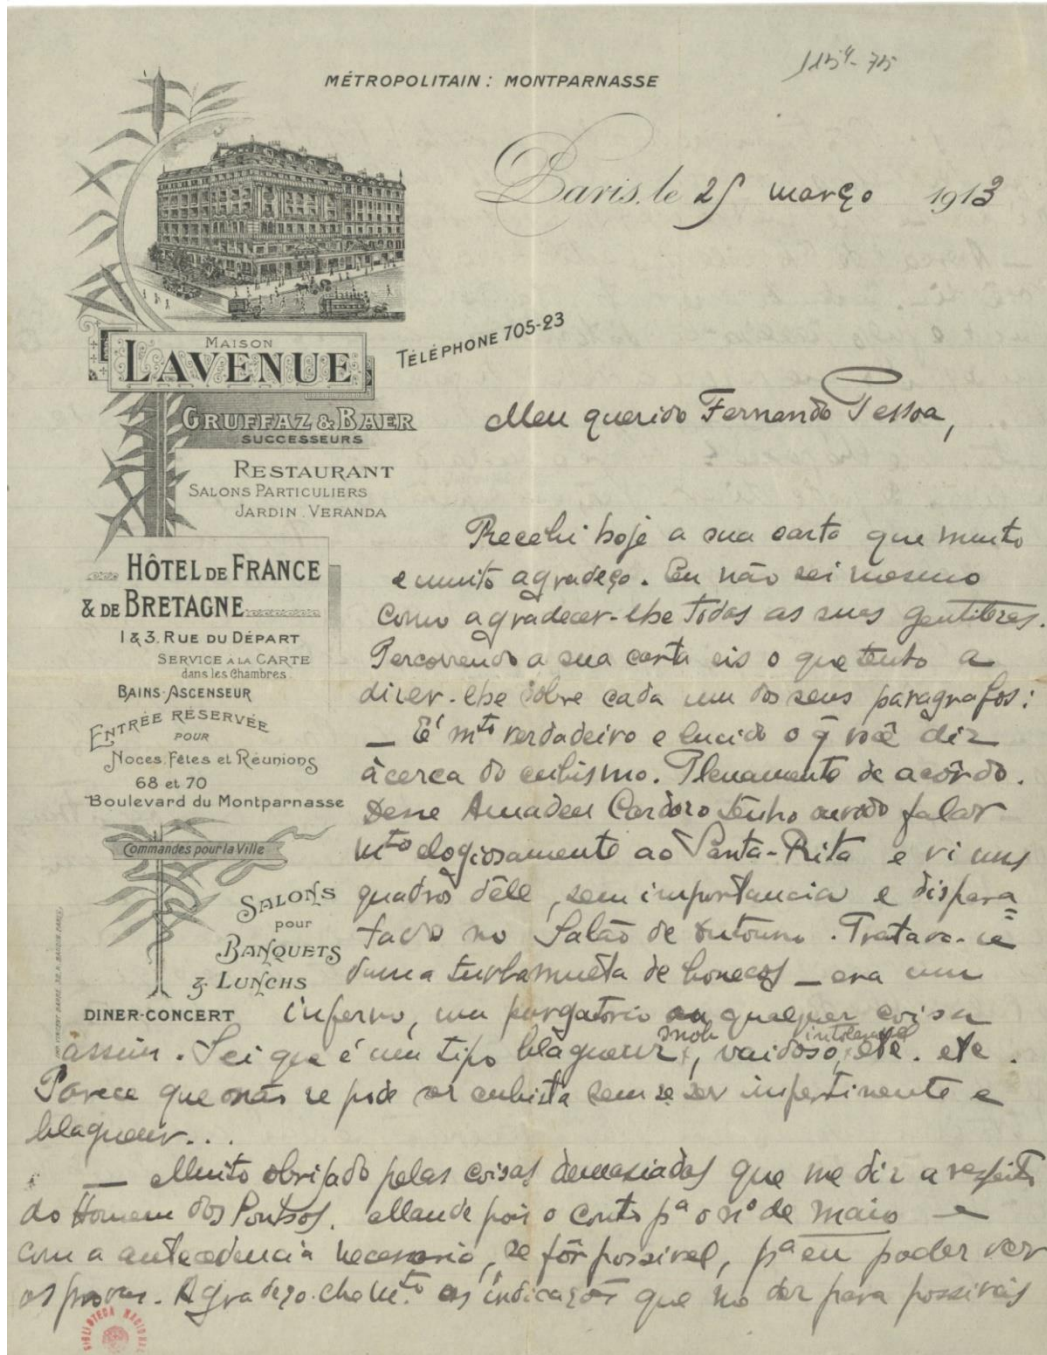 115⁴-715
MÉTROPOLITAIN: MONTPARNASSE
Paris, le 25 março 1913
MAISON
LAVENUE
TÉLÉPHONE 705-23
GRUFFAZ & BAER
SUCCESSEURS
RESTAURANT
SALONS PARTICULIERS
JARDIN. VERANDA
HÔTEL DE FRANCE
& DE BRETAGNE
1 & 3. RUE DU DÉPART
SERVICE A LA CARTE
dans les Chambres.
BAINS-ASCENSEUR
ENTRÉE RÉSERVÉE
POUR
Noces, Fêtes et Réunions
68 et 70
Boulevard du Montparnasse
Commandes pour la Ville
SALONS
pour
BANQUETS
& LUNCHS
DINER-CONCERT
Meu querido Fernando Pessoa,
Recebi hoje a sua carta que muito
e muito agradeço. Eu não sei mesmo
como agradecer-lhe todas as suas gentilezas.
Percorrendo a sua carta eis o que tenho a
dizer-lhe sobre cada um dos seus paragrafos:
— É mto verdadeiro e lucido o q̃ você diz
àcerca do cubismo. Plenamente de acôrdo.
Desse Amadeu Cardozo tenho ouvido falar
mto elogiosamente ao Santa-Rita e vi uns
quadros dêle, sem importancia e dispara=
tados no Salão de Outouno. Tratava-se
duma turbamulta de bonecos — era um
inferno, um purgatorio ou qualquer coisa
assim. Sei que é um tipo blagueur, snob, vaidoso, intoleravel etc. etc.
Parece que não se pode ser cubista sem se ser impertinente e
blagueur...
— Muito obrigado pelas coisas demasiadas que me diz a respeito
do Homem dos Sonhos. Mande pois o conto pª o nº de maio e
com a antecedencia necessaria, se fôr possivel, pª eu poder ver
as provas. Agradeço-lhe mto as indicações que me dá para possiveis
BIBLIOTECA NACIONAL